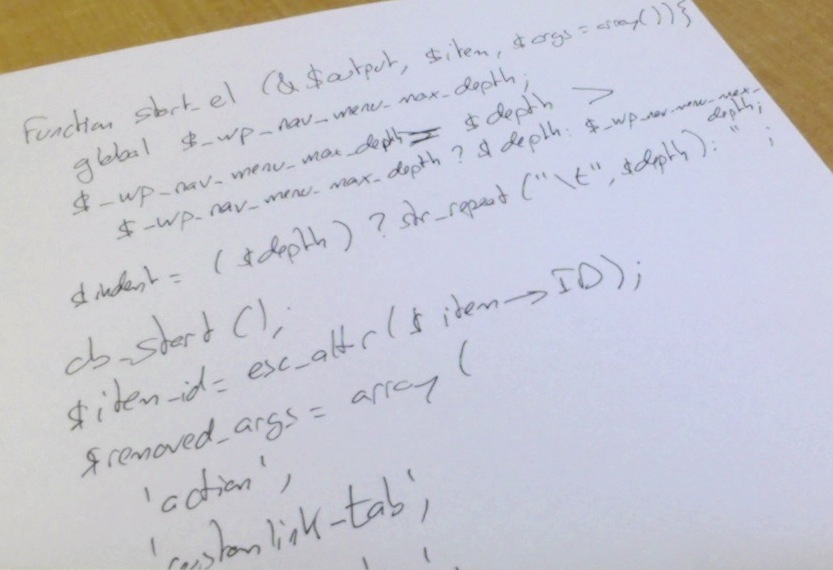 Function start_el (& $output, $item, $args = array()){
global $_wp_nav_menu_max_depth;
$_wp_nav_menu_max_depth = $depth >
$_wp_nav_menu_max_depth ? $depth : $_wp_nav_menu_max_
depth;
$indent = ($depth) ? str_repeat("\t", $depth) : " ;
ob_start();
$item_id = esc_attr($item→ID);
$removed_args = array(
'action',
'customlink-tab',